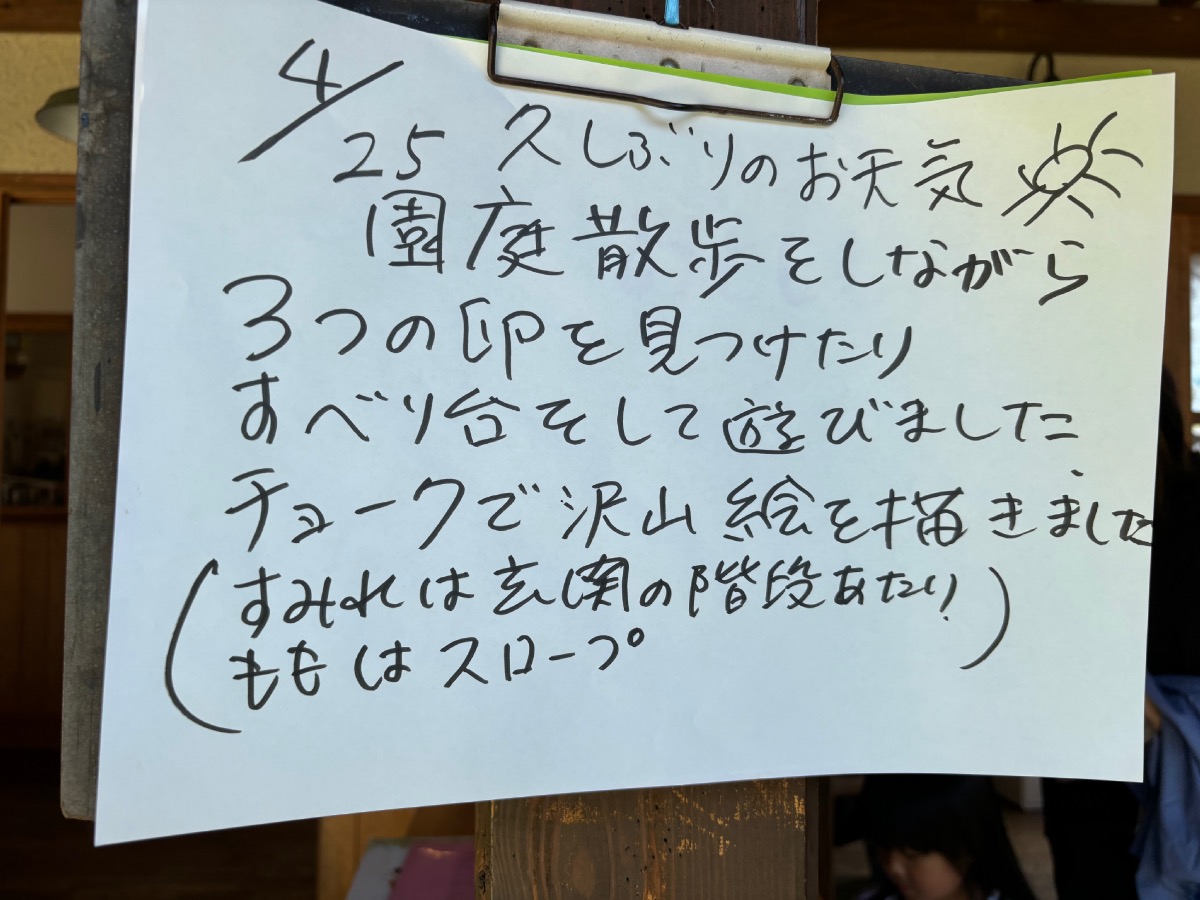 4/25 久しぶりのお天気
園庭散歩をしながら
3つの卵を見つけたり
すべり台をして遊びました。
チョークで沢山絵を描きました
(すみれは玄関の階段あたり!
ももはスロープ)